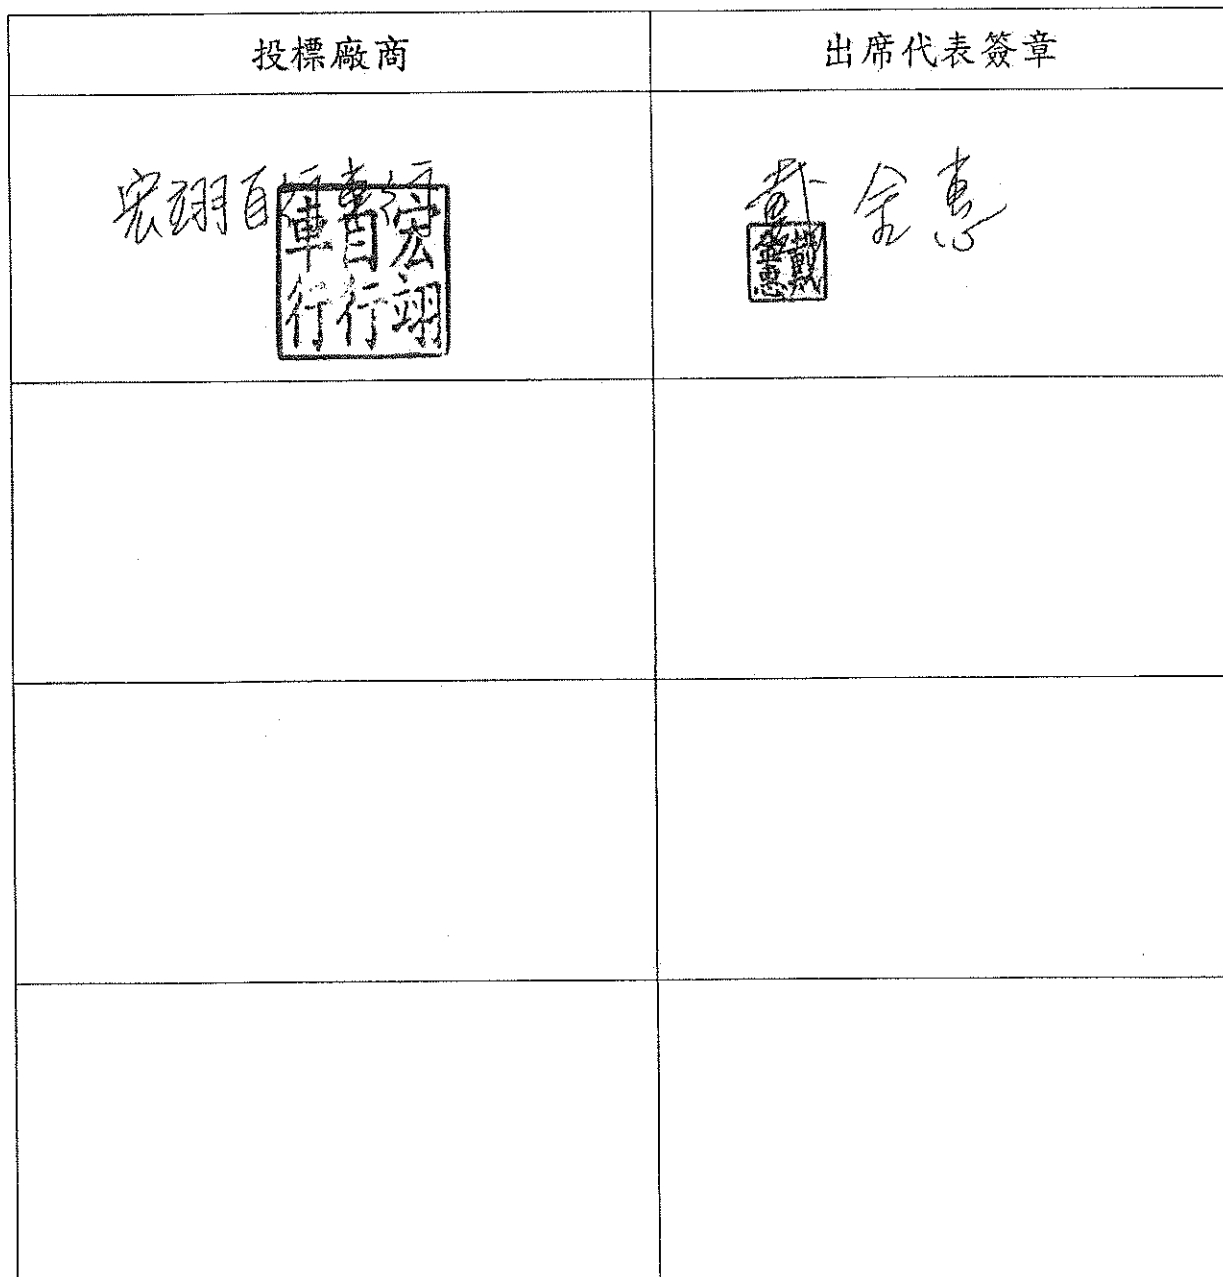 投標廠商
出席代表簽章
宏翊自行車行
宏翊
自行
車行
戴金惠
戴
金惠